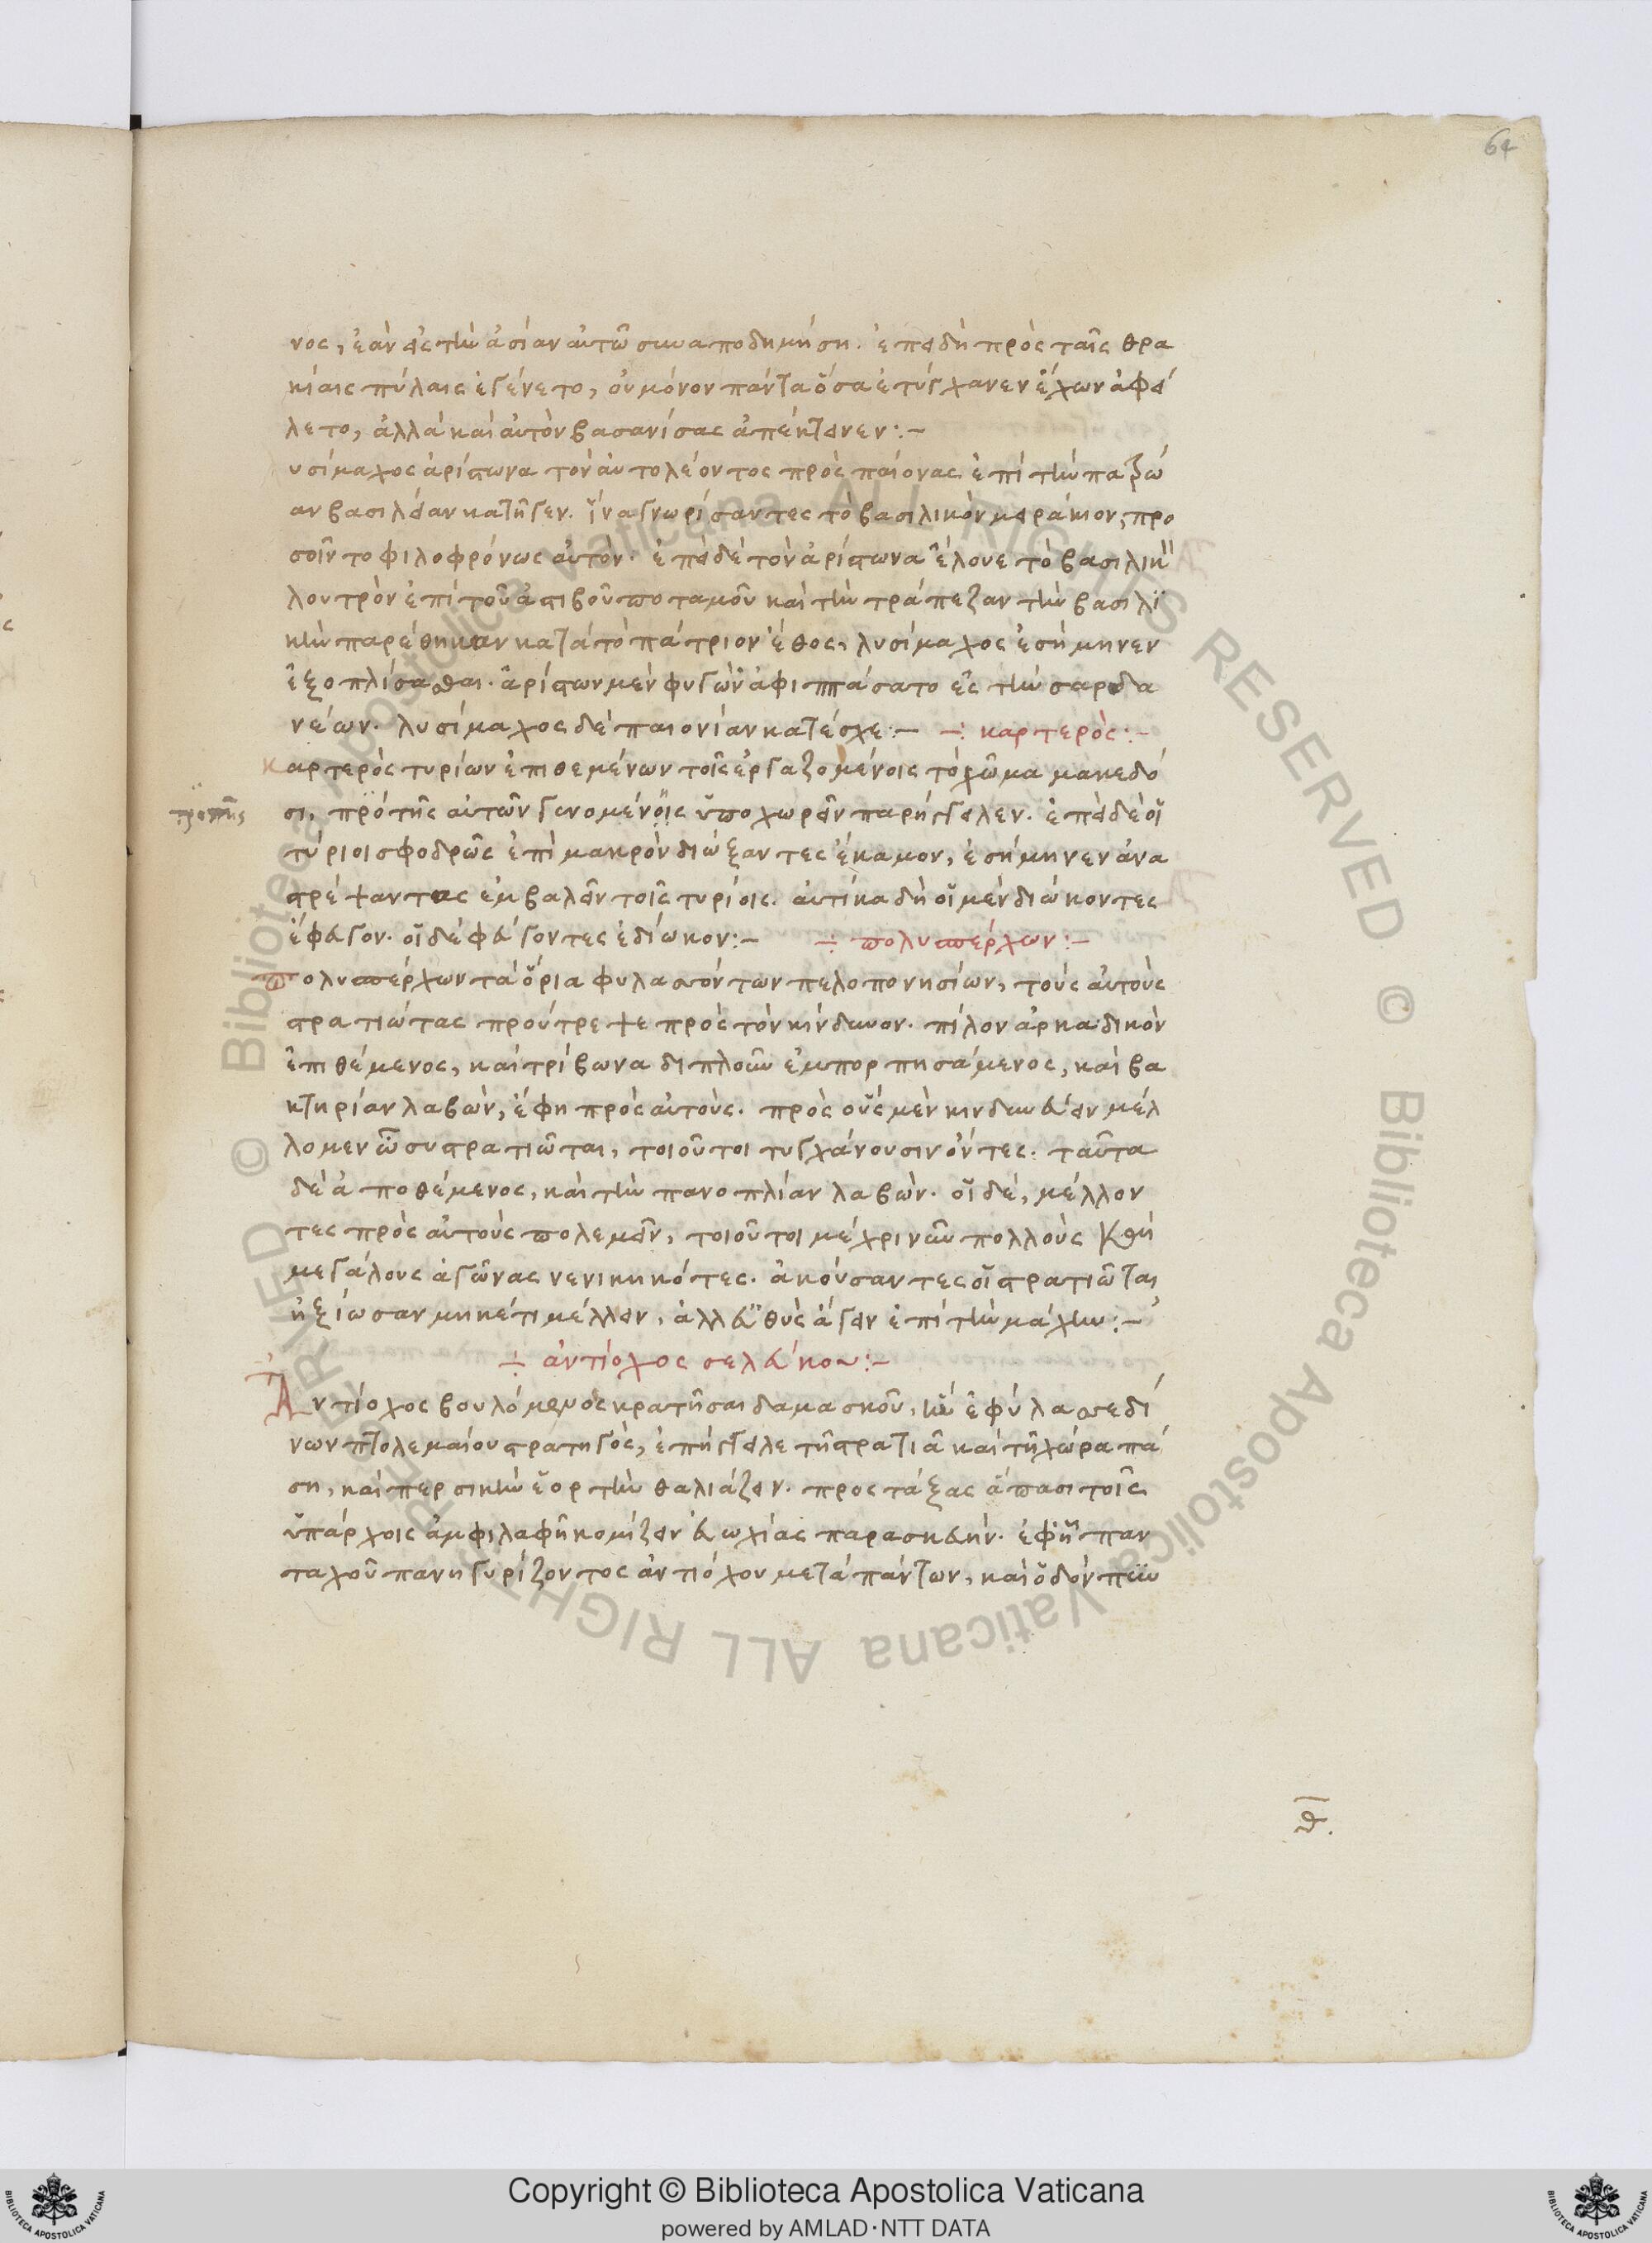 64
νος, ἐὰν εἰς τὴν ἀσίαν αὐτῶ συναποδημήση. ἐπειδὴ πρὸς ταῖς θρα
κίαις πύλαις ἐγένετο, οὐ μόνον πάντα ὅσα ἐτύγχανεν ἔχων ἀφεί
λετο, ἀλλὰ καὶ αὐτὸν βασανίσας ἀπέκτεινεν:-
υσίμαχος ἀρίστωνα τὸν αὐτολέοντος πρὸς παίονας ἐπὶ τὴν πατρώ
αν βασιλείαν κατῆγεν. ἵνα γνωρίσαντες τὸ βασιλικὸν μειράκιον, προ
σοῖντο φιλοφρόνως αὐτόν. ἐπεὶ δὲ τὸν ἀρίστωνα ἔλουε τὸ βασιλικὸν
λουτρὸν ἐπὶ τοῦ ἀστιβοῦ ποταμοῦ καὶ τὴν τράπεζαν τὴν βασιλι
κὴν παρέθηκαν κατὰ τὸ πάτριον ἔθος, λυσίμαχος ἐσήμηνεν
ἐξοπλίσασθαι. ἀρίστων μὲν φυγὼν ἀφιππάσατο εἰς τὴν σαρδα
νέων. λυσίμαχος δὲ παιονίαν κατέσχε:- -:- καρτερός:-
καρτερὸς τυρίων ἐπιθεμένων τοῖς ἐργαζομένοις τὸ χῶμα μακεδό
τροπῆς
σι, πρό τῆς αὐτῶν γενομένοις ὑποχωρεῖν παρήγγειλεν. ἐπεὶ δὲ οἱ
τύριοι σφοδρῶς ἐπὶ μακρὸν διώξαντες ἔκαμον, ἐσήμηνεν ἀνα
στρέψαντας ἐμβαλεῖν τοῖς τυρίοις. αὐτίκα δὴ οἱ μὲν διώκοντες
ἔφευγον. οἱ δὲ φεύγοντες ἐδίωκον:- -:- πολυσπέρχων:-
πολυσπέρχων τὰ ὅρια φυλασσόντων πελοπονησίων, τοὺς αὐτοὺς
στρατιώτας προύτρεψε πρὸς τὸν κίνδυνον. πίλον ἀρκαδικὸν
ἐπιθέμενος, καὶ τρίβωνα διπλοῦν ἐμπορπησάμενος, καὶ βα
κτηρίαν λαβὼν, ἔφη πρὸς αὐτούς. πρὸς οὓς μὲν κινδυνεύειν μέλ
λομεν ὦ συστρατιῶται, τοιοῦτοι τυγχάνουσιν ὄντες. ταῦτα
δὲ ἀποθέμενος, καὶ τὴν πανοπλίαν λαβὼν. οἱ δὲ, μέλλον
τες πρὸς αὐτοὺς πολεμεῖν, τοιοῦτοι μέχρι νῦν πολλοὺς καὶ
μεγάλους ἀγῶνας νενικηκότες. ἀκούσαντες οἱ στρατιῶται
ἠξίωσαν μηκέτι μέλλειν, ἀλλ' εὐθὺς ἄγειν ἐπὶ τὴν μάχην:-
-:- ἀντίοχος σελεύκου:-
Ἀντίοχος βουλόμενος κρατῆσαι δαμασκοῦ, ἣν ἐφύλασσε δί
νων πτολεμαίου στρατηγὸς, ἐπήγγειλε τῆ στρατιᾶ καὶ τῆ χώρα πά
ση, καὶ περσικὴν ἑορτὴν θαλιάζειν. προστάξας ἅπασι τοῖς
ὑπάρχοις ἀμφιλαφῆ κομίζειν εὐωχίας παρασκευήν. ἐφ' ἧ παν
ταχοῦ πανηγυρίζοντος ἀντιόχου μετὰ πάντων, καὶ ὁ δὸν
θ.
Copyright © Biblioteca Apostolica Vaticana
powered by AMLAD·NTT DATA
© Biblioteca Apostolica Vaticana ALL RIGHTS RESERVED © Biblioteca Apostolica Vaticana ALL RIGHTS RESERVED